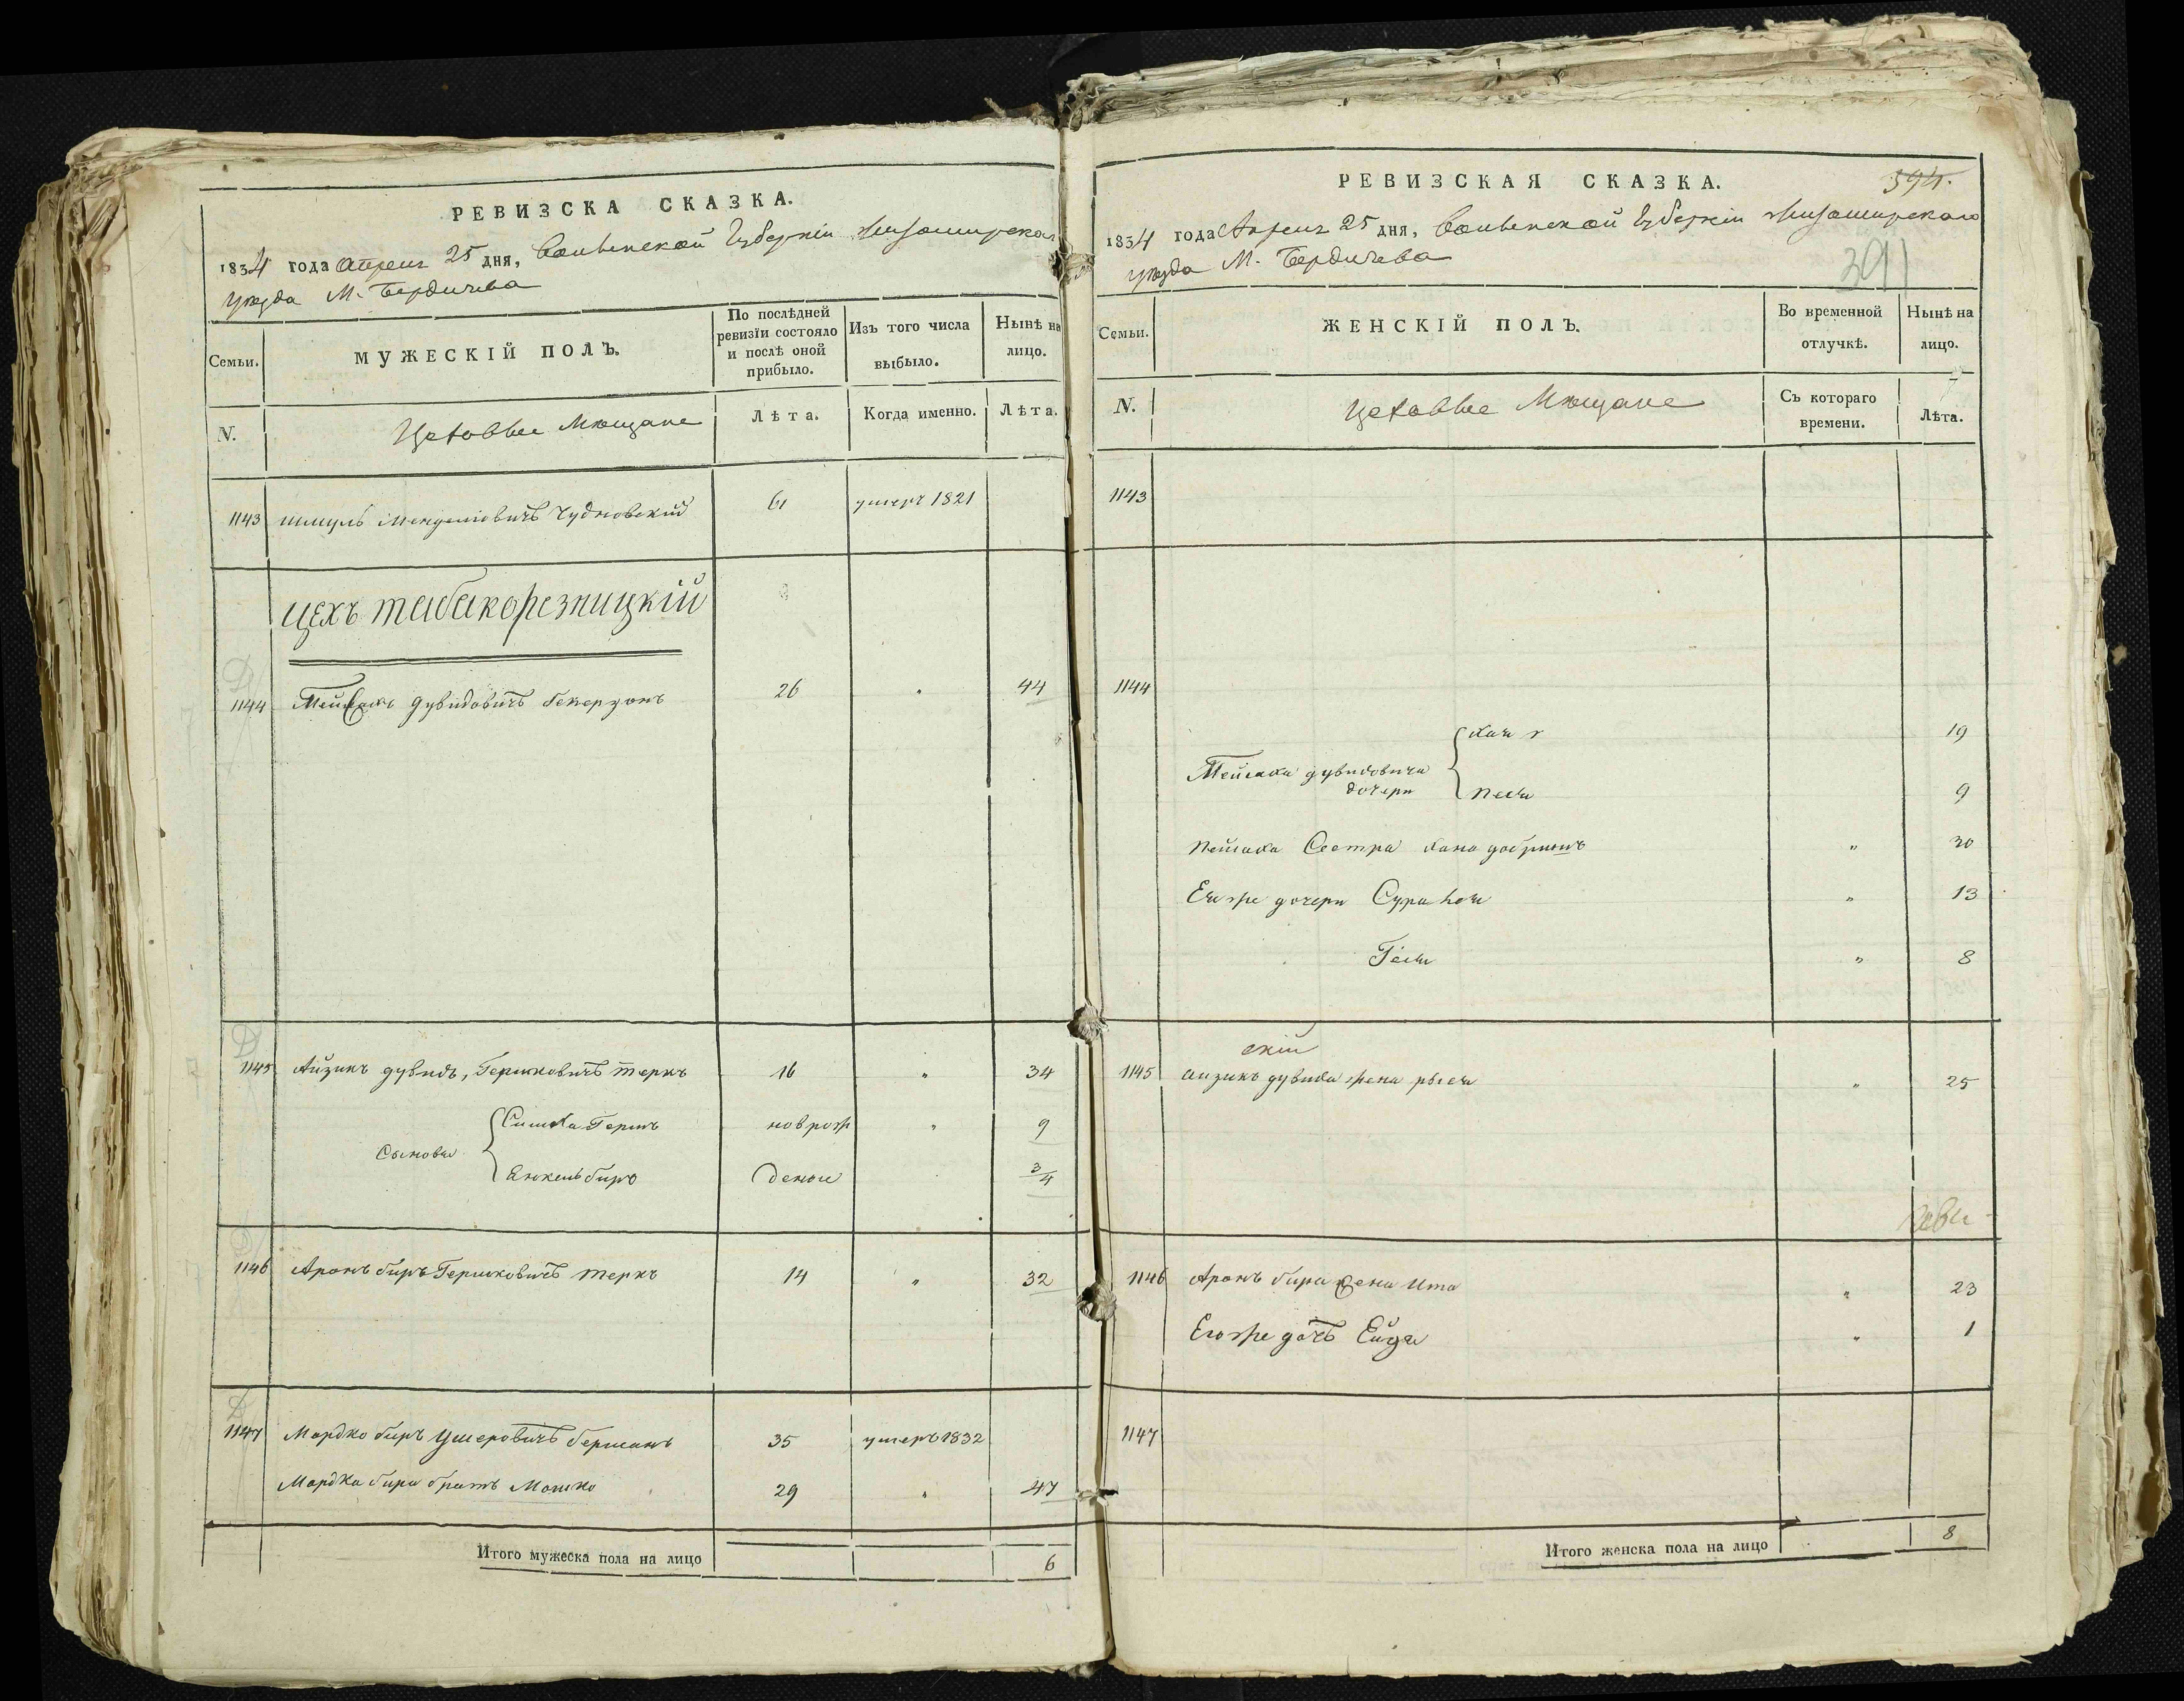 РЕВИЗСКА СКАЗКА.
1834 года Апреля 25 дня, Волынской Губерніи Житомирскаго
уѣзда М. Бердичева
Семьи.
МУЖЕСКІЙ ПОЛЪ.
По послѣдней ревизіи состояло и послѣ оной прибыло.
Изъ того числа выбыло.
Нынѣ на лицо.
N.
Цеховые Мещане
Лѣта.
Когда именно.
Лѣта.
1143 Шмуль Менделіовичъ Чудновский 61 умеръ 1821
Цехъ табакорезницкій
1144 Дувидовичъ 26 " 44
1145 Айзикъ дувидъ, Гершковичъ теркъ 16 " 34
Сыновья
Симха Гершъ новрож " 9
Янкель биръ деные 3/4
1146 Аронъ биръ Гершковичъ теркъ 14 " 32
1147 Мордко биръ Ушеровичъ Германъ 35 умеръ 1832
Мордка бира братъ Мошко 29 " 47
Итого мужеска пола на лицо 6
РЕВИЗСКАЯ СКАЗКА.
394.
1834 года Апреля 25 дня, Волынской Губерніи Житомирскаго
уѣзда М. Бердичева
391
Семьи.
ЖЕНСКІЙ ПОЛЪ.
Во временной отлучкѣ.
Нынѣ на лицо.
N.
Цеховые Мещане
Съ котораго времени.
Лѣта.
1143
1144
Хая 19
дувидовича
дочери
Песя 9
Сестра Хана " 30
Ея же дочери Сура " 13
Гися " 8
скій
1145 Айзикъ дувида жена рыся " 25
1146 Аронъ бира жена Ита " 23
Его же дочь Ейдя " 1
1147
Итого женска пола на лицо 8